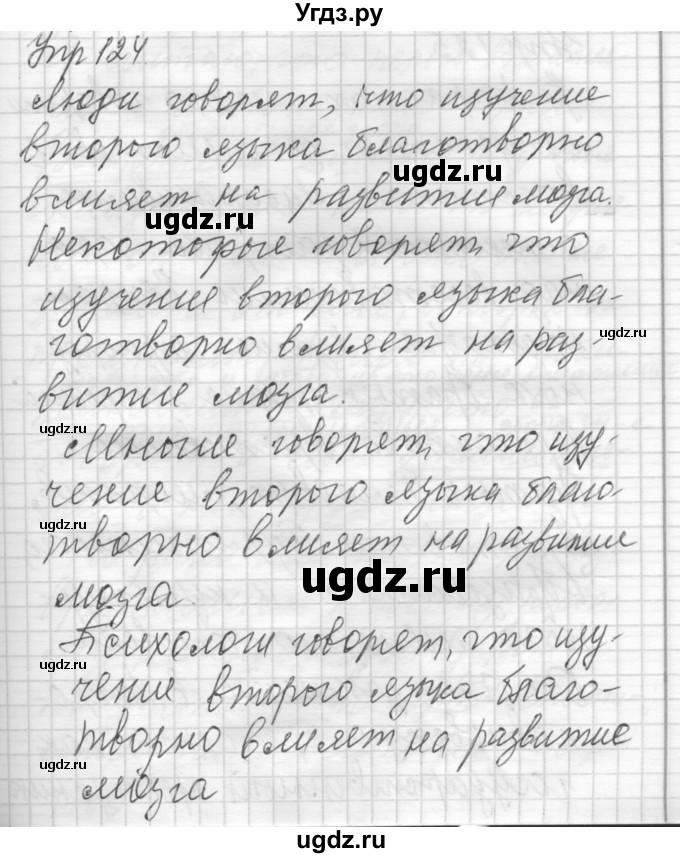 Угдз.ру
Упр 124.
Люди говорят, что изучение
второго языка благотворно
ugdz.ru
влияет на развитие мозга.
ugdz.ru
Некоторые говорят, что
изучение второго языка бла-
ugdz.ru
готворно влияет на раз-
витие мозга.
ugdz.ru
Многие говорят, что изу-
чение второго языка благо-
ugdz.ru
творно влияет на развитие
ugdz.ru
мозга.
Психологи говорят, что изу-
ugdz.ru
чение второго языка благо-
творно влияет на развитие
ugdz.ru
мозга
ugdz.ru